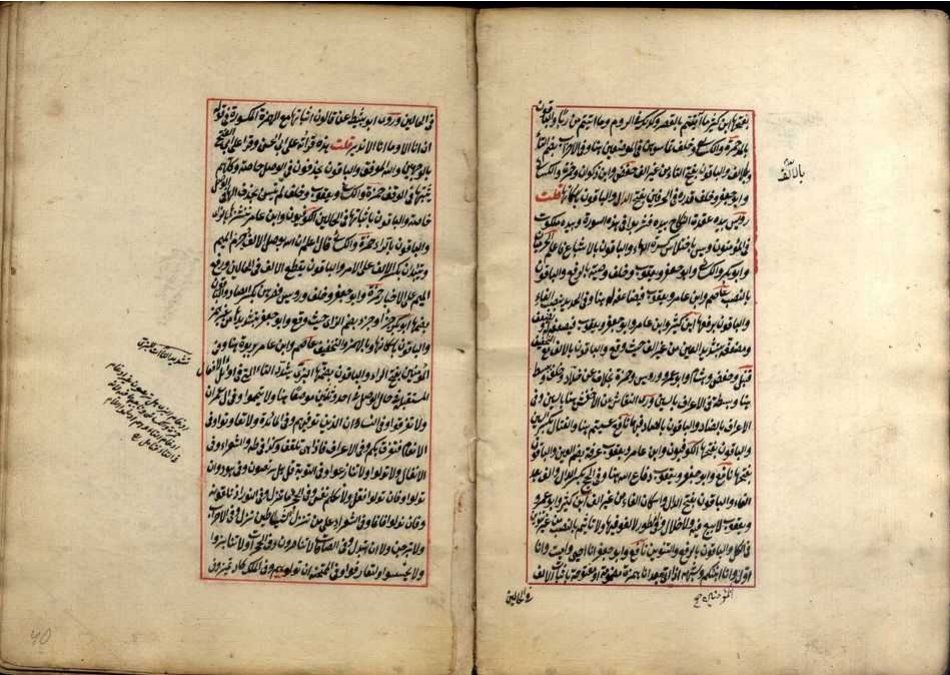 يعقوبها ابن كثير ما آتيتم بالقصر وكذا في الروم وما آتيتم من ربا والباقون
بالمد حمزة والكسائي وخلف تماسوهن في الموضعين هنا وفي الاحزاب بضم التاء
وبالالف والباقون بفتح التاء من غير الف حفص وابن ذكوان وحمزة والكسائي
وابو جعفر وخلف قدره في الحرفين بفتح الدال والباقون باسكانها قلت
رويس بيده عقدة النكاح بيده فشربوا في هذه السورة وبيده ملكوت
في المؤمنون ويس باختلاس كسرة الهاء والباقون بالاشباع فاعلم الحرميان
وابو بكر والكسائي وابو جعفر ويعقوب وخلف وصية بالرفع والباقون
بالنصب عاصم وابن عامر ويعقوب فيضاعفه له هنا وفي الحديد بنصب الفاء
والباقون برفعها ابن كثير وابن عامر وابو جعفر ويعقوب فيضعف
ومضعفة بتشديد العين من غير الف حيث وقع والباقون بالالف مع التخفيف
قنبل وحفص وهشام وابو عمرو ورويس وحمزة بخلاف عن خلاد وخلف يبسط
هنا وبسطة في الاعراف بالسين وروى النقاش عن الاخفش هنا بالسين وفي
الاعراف بالصاد والباقون بالصاد فيهما نافع عسيتم هنا وفي القتال بكسر السين
والباقون بفتحها الكوفيون وابن عامر ويعقوب غرفة بضم الغين والباقون
بفتحها نافع وابو جعفر ويعقوب دفاع الله هنا وفي الحج بكسر الدال والف بعد
الفاء والباقون بفتح الدال واسكان الفاء من غير الف ابن كثير وابو عمرو
ويعقوب لا بيع فيه ولا خلال وفي الطور لا لغو فيها ولا تاثيم بالنصب من غير تنوين
في الكل والباقون بالرفع والتنوين نافع وابو جعفر انا احيي واميت وانا
اول وانا انبئكم وشبهه اذا اتى بعد انا همزة مضمومة او مفتوحة باثبات الالف
بالالف
في الحالين
في الحالين وروى ابو نشيط عن قالون اثباتها مع الهمزة المكسورة في قوله
ان انا الا وما انا الا نذير قلت بهذه قرأته على ابي الحسن وقرأ على ابي الفتح
بالوجهين والله الموفق والباقون بحذفون في الوصل خاصة وكلهم
يثبتها في الوقف حمزة والكسائي ويعقوب وخلف لم يتسن بحذف الهاء في الوصل
خاصة والباقون باثباتها في الحالين الكوفيون وابن عامر ننشزها بالزاى
والباقون بالراء حمزة والكسائي قال اعلم ان الله بوصل الالف وجزم الميم
ويبتديان بكسر الالف على الامر والباقون بقطع الالف في الحالين ورفع
الميم على الاخبار حمزة وابو جعفر وخلف ورويس فصرهن بكسر الصاد والباقون
بضمها ابو بكر جزؤا وجزء بضم الزاى حيث وقع وابو جعفر بتشديد الزاى من غير همز
والباقون باسكانها وبالهمز والتخفيف عاصم وابن عامر بربوة هنا وفي
المؤمنين بفتح الراء والباقون بضمها البزى يشدد التاء التي في اوائل الافعال
المستقبلة حال الوصل في احد وثلثين موضعا هنا ولا تيمموا وفي ال عمران
ولا تفرقوا وفي النساء ان الذين توفيهم وفي المائدة ولا تعاونوا وفي
الانعام فتفرق بكم وفي الاعراف فاذا هي تلقف وكذا في طه والشعراء وفي
الانفال ولا تولوا ولا تنازعوا وفي التوبة قل هل تربصون وفي هود وان
تولوا وفان تولوا فقل ولا تكلم نفس وفي الحجر ما تنزل وفي النور اذ تلقونه
وفان تولوا فانما وفي الشعراء على من تنزل الشياطين تنزل وفي الاحزاب
ولا تبرجن ولا ان تبدل وفي الصافات لا تناصرون وفي الحجرات ولا تنابزوا
ولا تجسسوا ولتعارفوا وفي الممتحنة ان تولوهم وفي الملك تكاد تميز وفي
40